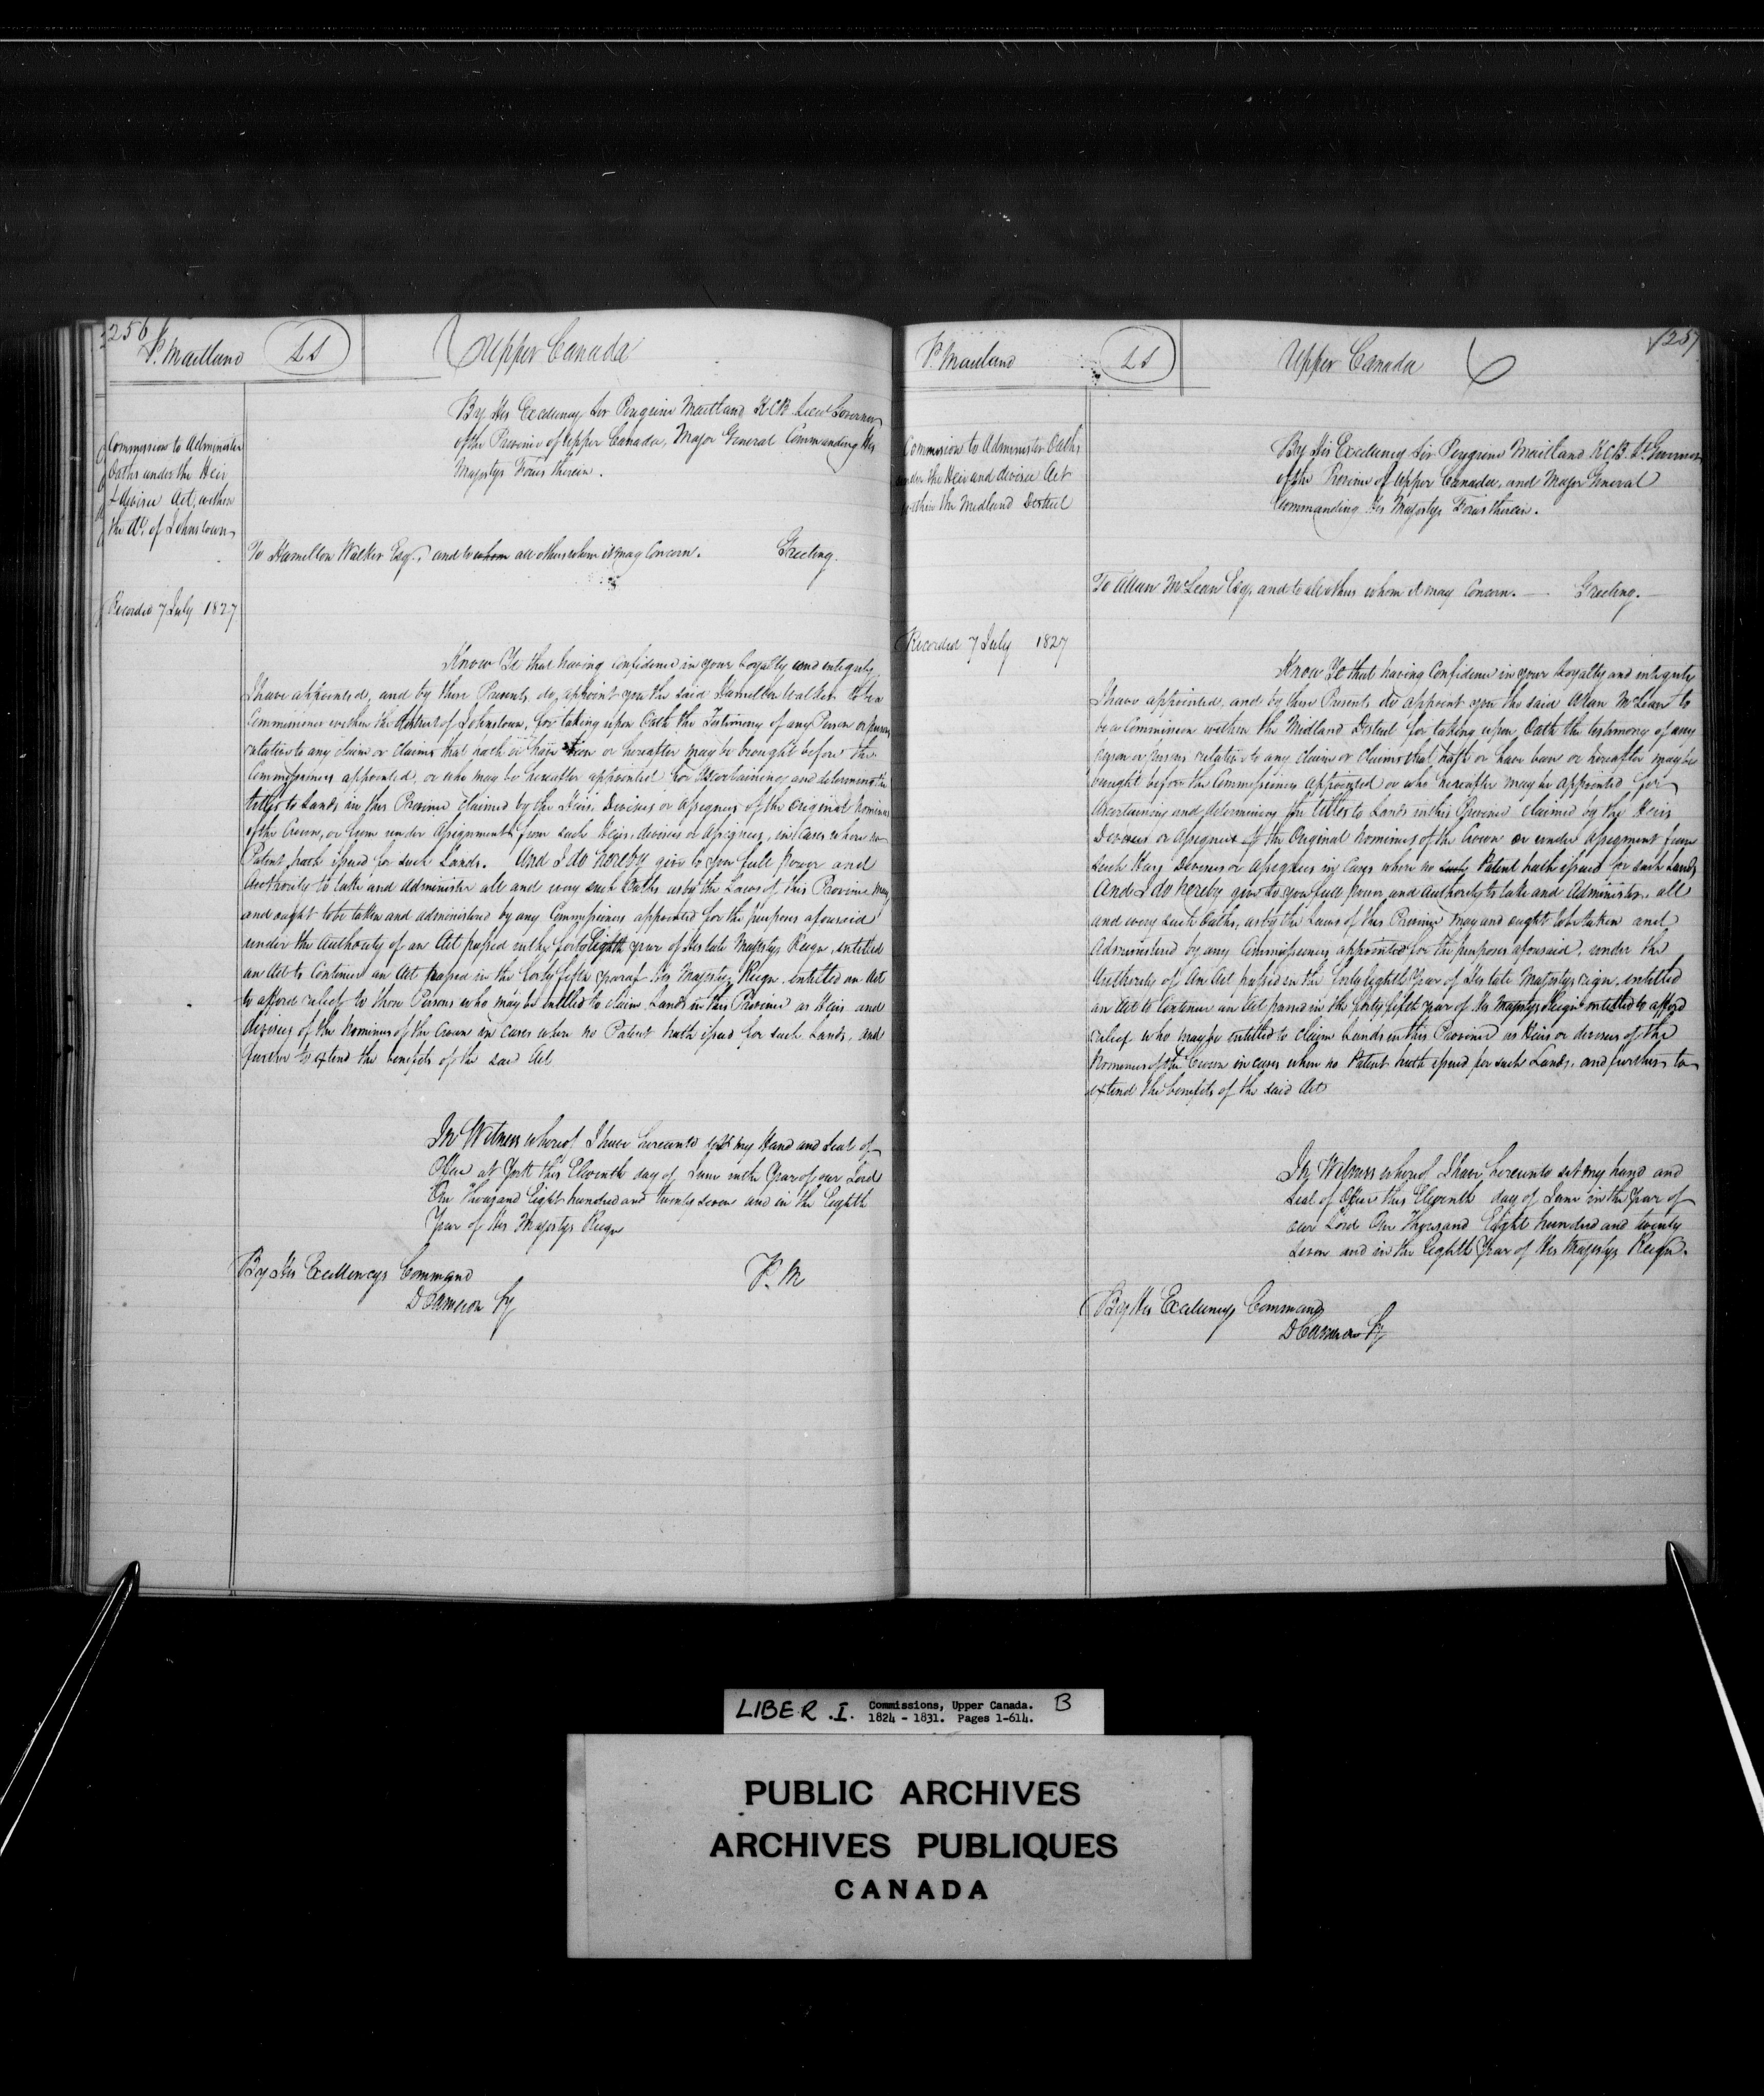 256
P. Maitland
LS
Upper Canada
Commission to Administer
Oaths under the Heir
& devisee Act, within
the Dt. of Johnstown
Recorded 7 July 1827
By His Excellency Sir Peregrine Maitland K.C.B. Lieut Governor
of the Province of Upper Canada, Major General Commanding His
Majestys Forces therein.
To Hamilton Walker Esqr, and to whom all others whom it may Concern. Greeting.
Know Ye that having Confidence in your Loyalty and integrity
I have appointed, and by these Presents, do, appoint you the said Hamilton Walker to be a
Commissioner within the District of Johnstown, for taking upon Oath the Testimony of any Person or persons
relative to any claim or claims that hath or have been or hereafter may be brought before the
Commissioners appointed, or who may be hereafter appointed for Ascertaining and determining the
titles to Lands in this Province claimed by the Heirs, Devisees or Assignees of the Original Nominees
of the Crown, or from under Assignments from such Heirs, devisees or Assignees, in Cases where no
Patent hath issued for such Lands. And I do hereby give to you full Power and
Authority to take and administer all and every such Oaths as by the Laws of this Province may
and ought to be taken and administered by any Commissioners appointed for the purposes aforesaid
under the Authority of an Act passed in the forty Eighth year of His late Majestys Reign, entitled
an Act to Continue an Act passed in the forty fifth year of His Majestys Reign, entitled an Act
to afford relief to those Persons who may be entitled to claim Lands in this Province as Heirs and
devisees of the Nominees of the Crown in Cases where no Patent hath issued for such Lands, and
further to extend the benefits of the said Act
In Witness whereof I have hereunto set my Hand and Seal of
Office at York this Eleventh day of June in the Year of our Lord
One Thousand Eight hundred and twenty seven and in the Eighth
Year of His Majestys Reign
By His Excellencys Command
P. M
D Cameron Sy
257
P. Maitland
LS
Upper Canada
Commission to Administer Oaths
under the Heir and devisee Act
within the Midland District
Recorded 7 July 1827
By His Excellency Sir Peregrine Maitland K.C.B. Lt Governor
of the Province of Upper Canada, and Major General
Commanding His Majestys Forces therein.
To Allan McLean Esq, and to all others whom it may Concern. Greeting.
Know Ye that having Confidence in your Loyalty and integrity
I have appointed, and by these Presents do appoint you the said Allan McLean to
be a Commission within the Midland District for taking upon Oath the testimony of any
person or persons relative to any claim or Claims that hath or have been or hereafter may be
brought before the Commissioners appointed or who hereafter may be appointed for
Ascertaining and determining the titles to Lands in this Province claimed by the Heirs
Devisees or Assignees of the Original Nominees of the Crown or under assignment from
such Heirs Devisees or assignees in Cases where no such Patent hath issued for such Lands
And I do hereby give to you full power and Authority to take and Administer, all
and every such Oaths, as by the Laws of this Province may and ought to be taken and
Administered by any Commissioners appointed for the purposes aforesaid, under the
Authority of An Act passed in the forty Eighth Year of His late Majestys reign entitled
an Act to Continue an Act passed in the forty fifth year of His Majestys Reign entitled to afford
relief who may be entitled to claim Lands in this Province as Heirs or devisees of the
Nominees of the Crown in cases where no Patent hath issued for such Lands, and further to
extend the benefits of the said Act
In Witness whereof I have hereunto set my hand and
Seal of Office this Eleventh day of June in the Year of
our Lord One Thousand Eight hundred and twenty
seven and in the Eighth Year of His Majestys Reign.
By His Excellencys Command
D Cameron Sy
LIBER .I. Commissions, Upper Canada. B
1824 - 1831. Pages 1-614.
PUBLIC ARCHIVES
ARCHIVES PUBLIQUES
CANADA